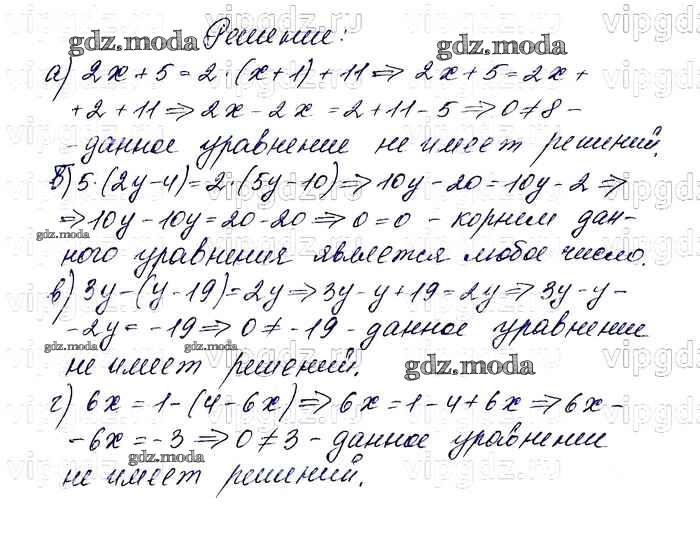 Решение:
а) 2x + 5 = 2 · (x + 1) + 11 ⇒ 2x + 5 = 2x +
+ 2 + 11 ⇒ 2x - 2x = 2 + 11 - 5 ⇒ 0 ≠ 8 -
- данное уравнение не имеет решений.
б) 5·(2y-4) = 2·(5y-10) ⇒ 10y - 20 = 10y - 2 ⇒
⇒ 10y - 10y = 20 - 20 ⇒ 0 = 0 - корнем дан-
ного уравнения является любое число.
в) 3y - (y - 19) = 2y ⇒ 3y - y + 19 = 2y ⇒ 3y - y -
- 2y = -19 ⇒ 0 ≠ -19 - данное уравнение
не имеет решений.
г) 6x = 1 - (4 - 6x) ⇒ 6x = 1 - 4 + 6x ⇒ 6x -
- 6x = -3 ⇒ 0 ≠ 3 - данное уравнение
не имеет решений.
gdz.moda
gdz.moda
gdz.moda
gdz.moda
gdz.moda
gdz.moda
gdz.moda
vipgdz.ru